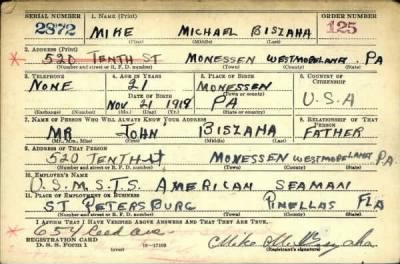 SERIAL NUMBER 1. NAME (Print) ORDER NUMBER
2872 MIKE MICHAEL BISZAHA 125
(First) (Middle) (Last)
2. ADDRESS (Print)
520 TENTH ST MONESSEN WESTMORELAND. PA
(Number and street or R. F. D. number) (Town) (County) (State)
3. TELEPHONE 4. AGE IN YEARS 5. PLACE OF BIRTH 6. COUNTRY OF CITIZENSHIP
NONE 21 MONESSEN
DATE OF BIRTH (Town or county)
NOV 21 1919 PA U.S.A
(Mo.) (Day) (Yr.) (State or country)
7. NAME OF PERSON WHO WILL ALWAYS KNOW YOUR ADDRESS 8. RELATIONSHIP OF THAT PERSON
MR JOHN BISZAHA FATHER
(Mr., Mrs., Miss) (First) (Middle) (Last)
9. ADDRESS OF THAT PERSON
520 TENTH ST MONESSEN WESTMORELAND PA
(Number and street or R. F. D. number) (Town) (County) (State)
10. EMPLOYER'S NAME
U.S.M.S.T.S. AMERICAN SEAMAN
11. PLACE OF EMPLOYMENT OR BUSINESS
ST PETERSBURG PINELLAS FLA
(Number and street or R. F. D. number) (Town) (County) (State)
I AFFIRM THAT I HAVE VERIFIED ABOVE ANSWERS AND THAT THEY ARE TRUE.
654 Reed ave.
REGISTRATION CARD
D. S. S. Form 1 (over) 16—17105 Mike M. Biszaha
(Registrant's signature)